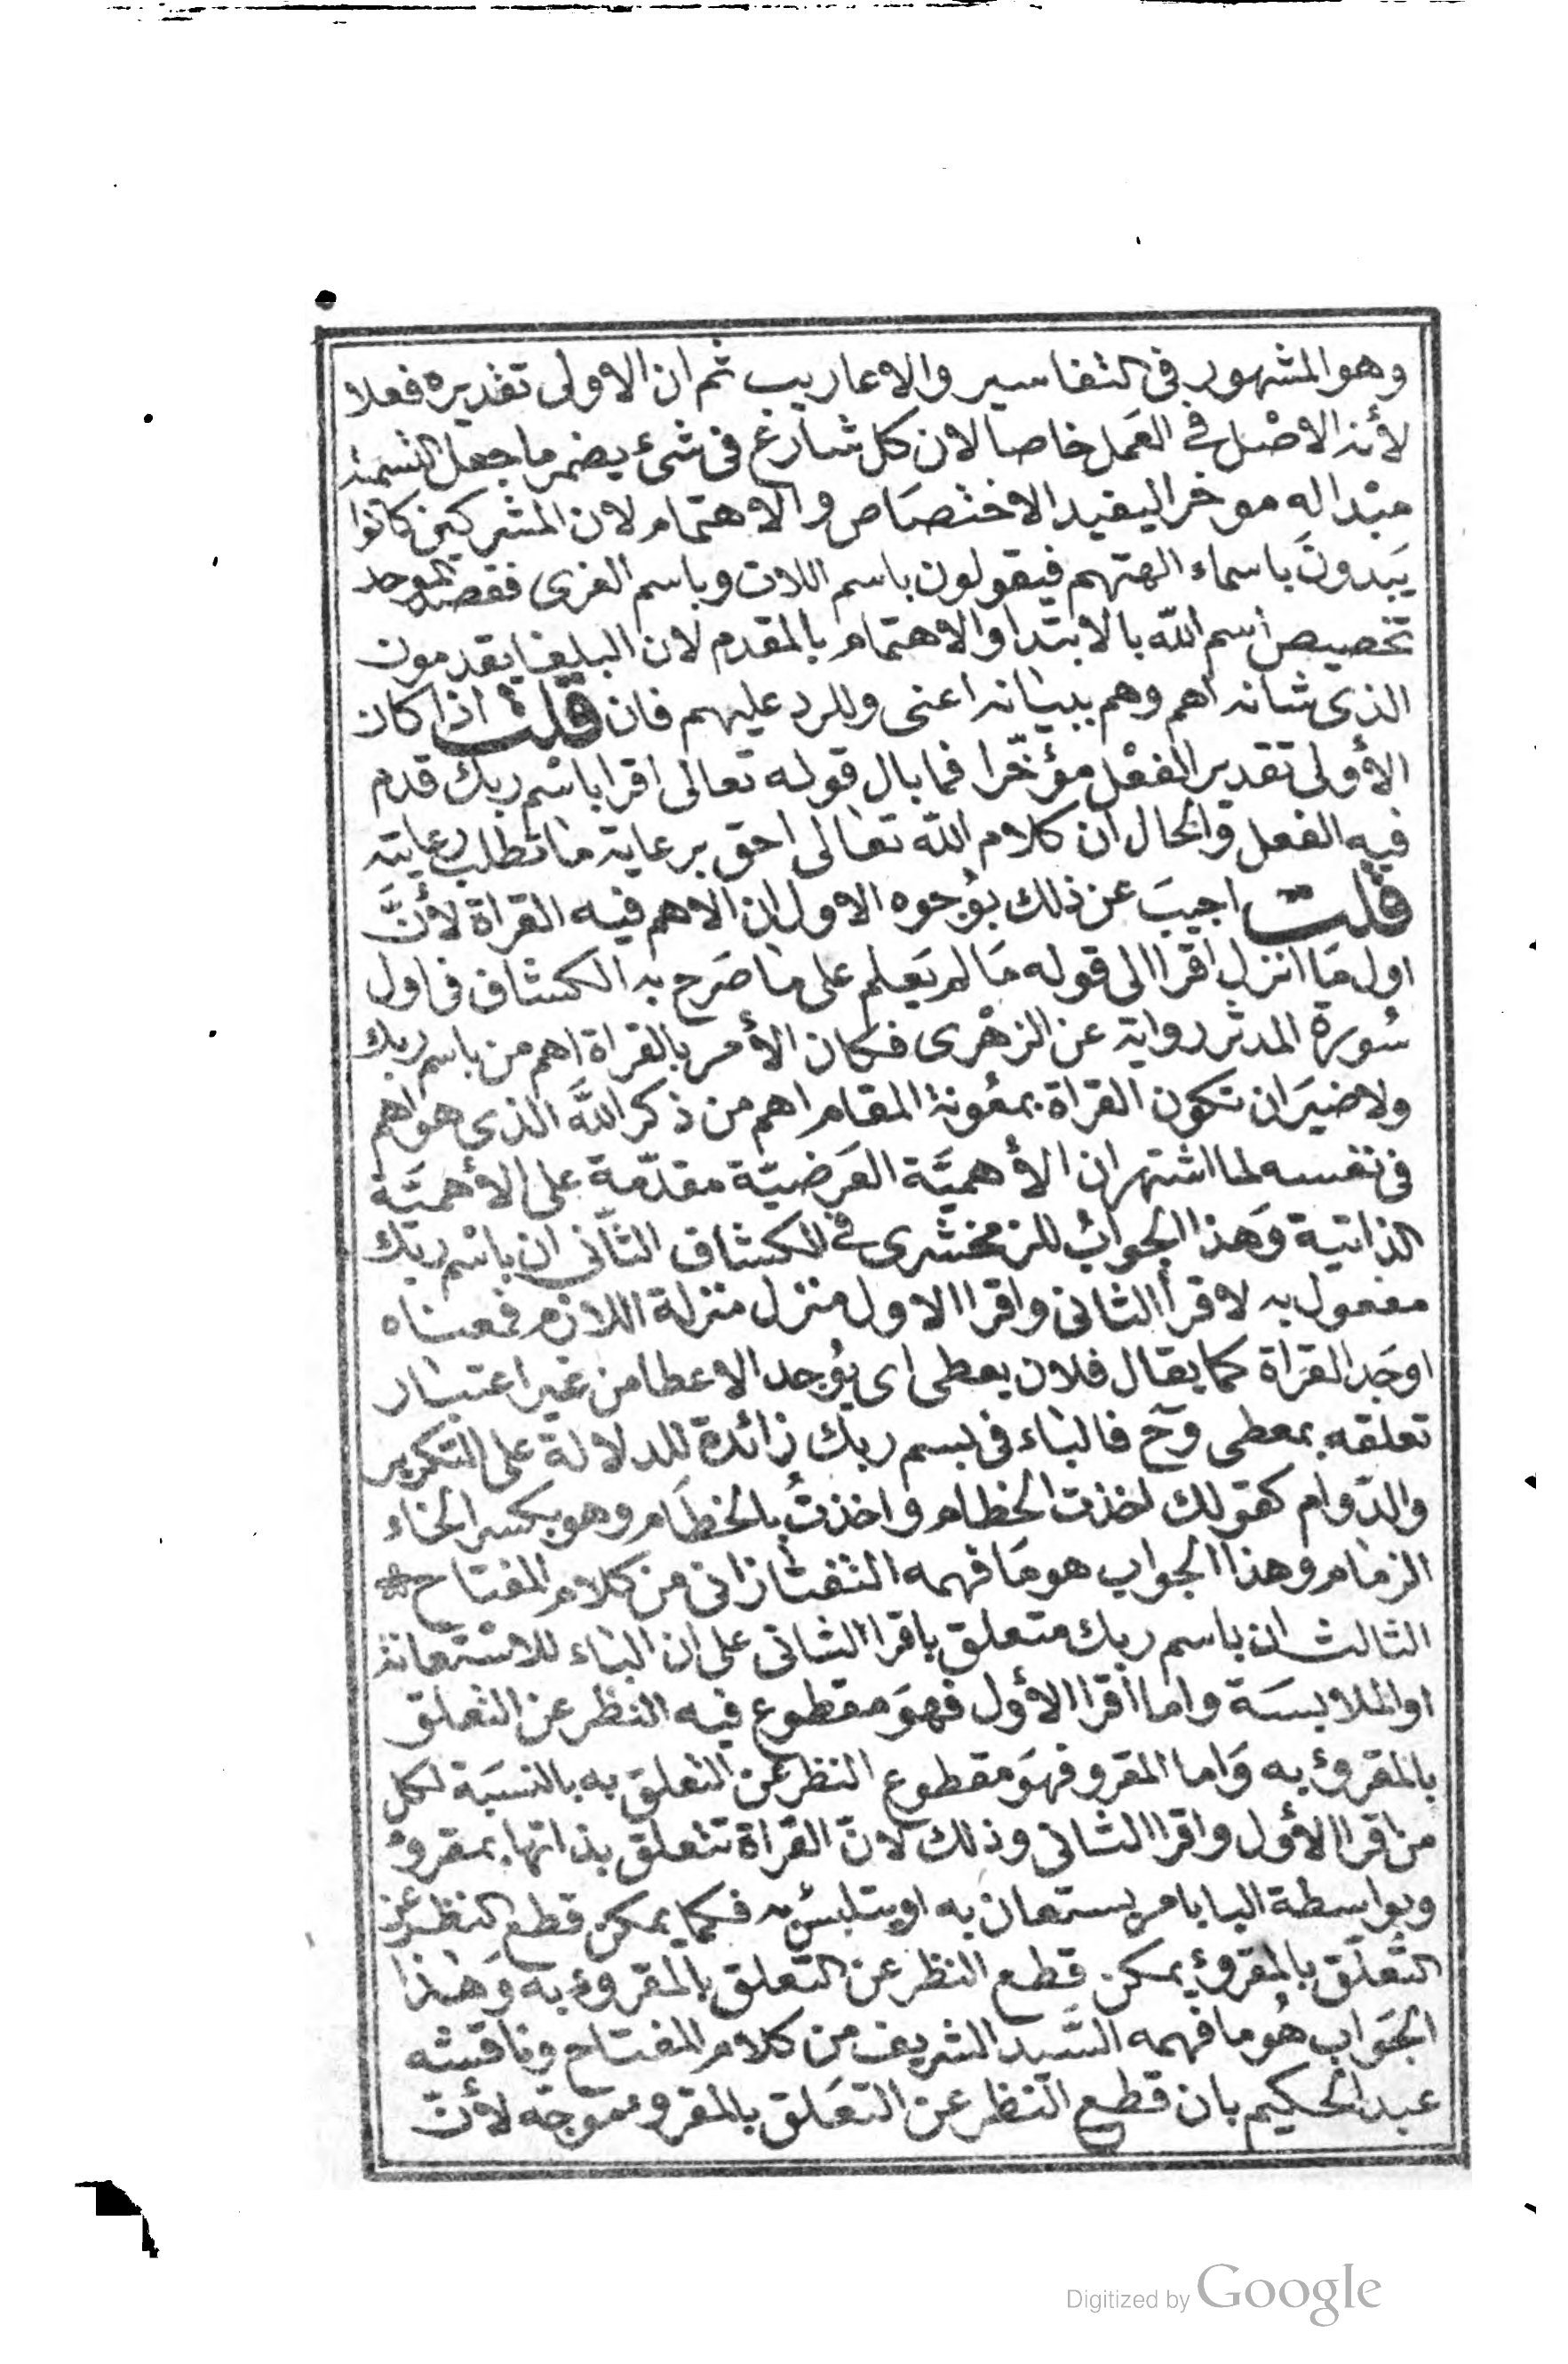 وهو المشهور فى التفاسير والاعاريب ثم ان الاولى تقديره فعلا
لأنه الاصْل فى العَمل خاصا لان كل شارع فى شئ يضمر ما جعل التسمية
مبْدا له موخر اليفيد الاختصَاص والاهتمام لان المشركين كانوا
يَبدونَ باسماء الهتهم فيقولون باسم اللات وباسم العزى فقصد الموحد
تخصيص اسم الله بالابتدا والاهتمام بالمقدم لان البلغا يقدمون
الذى شانه اهم وهم ببيانه اعنى وللرد عليهم فان قلت اذا كان
الأولى تقدير الفعْل مؤخّرا فما بال قوله تعالى اقرا باسْم ربك قدم
فيه الفعل والحال ان كلام الله تعالى احق برعاية ما تطلب رعايته
قلت اجيبَ عن ذلك بوُجوه الاول ان الاهم فيه القراة لأنَّ
اول مَا انزل اقرا الى قوله مَا لم يَعلم على ما صَرح به الكشاف فى اول
سُورة المدثر رواية عن الزهْرى فكان الأمر بالقراة اهم من باسم ربك
ولا ضيَر ان تكون القراة بمعُونة المقام اهم من ذكر اللهَ الذى هو اهم
فى نفسه لما اشتهر ان الأهميَّة العَرضيّة مقدّمة على الأهميَّة
الذاتية وَهذا الجوابُ للزمخشرى فى الكشاف الثانى ان باسْم ربّك
مفعول به لاقرأ الثانى واقرا الاول منزل منزلة اللازم فمعناه
اوجَد القرَاة كما يقال فلان يعطى اى يوُجد الاعطا من غير اعتبار
تعلقه بمعطى وحَ فالباء فى بسم ربك زائدة للدلالة على التكرير
والدّوام كقولك اخذت الخطام واخذتُ بالخطَام وهو بكسر الخاء
الزمام وهذا الجواب هو مَا فهمه التفتازانى من كلام المفتاح *
الثالث ان باسم ربك متعلق باقرا الثانى على ان الباء للاسْتعانة
او الملابسَة واما اقرا الأول فهوَ مقطوع فيه النظر عن التعلق
بالمقروء به وَاما المقرو فهوَ مقطوع النظر عن التعلق به بالنسبَة لكل
من اقرا الأول واقرا الثانى وذلك لانّ القراة تتعلق بذاتها بمقروء
وبواسطة البا بامر يستعان به او يتلبسُ به فكما يمكن قطع النظر عن
التّعلّق بالمقروء يمكن قطع النظر عن التعلق بالمقروء به وَهذا
الجَواب هُو ما فهمه السَّيد الشريف من كلام المفتاح وناقشه
عبد الحكيم بان قطع النظر عن التعَلق بالمقرو متوجّه لأنّ
Digitized by Google